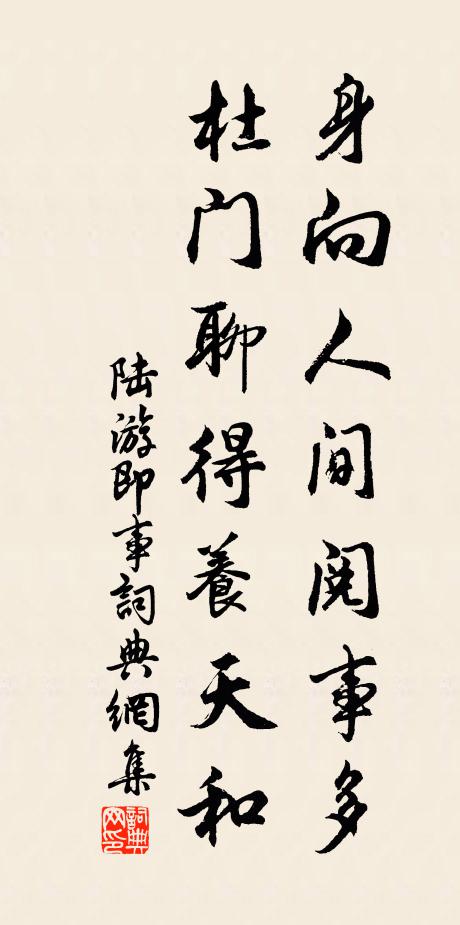 身向人间阅事多
杜门聊得養天和
陆游即事詞典網集
詞典网印